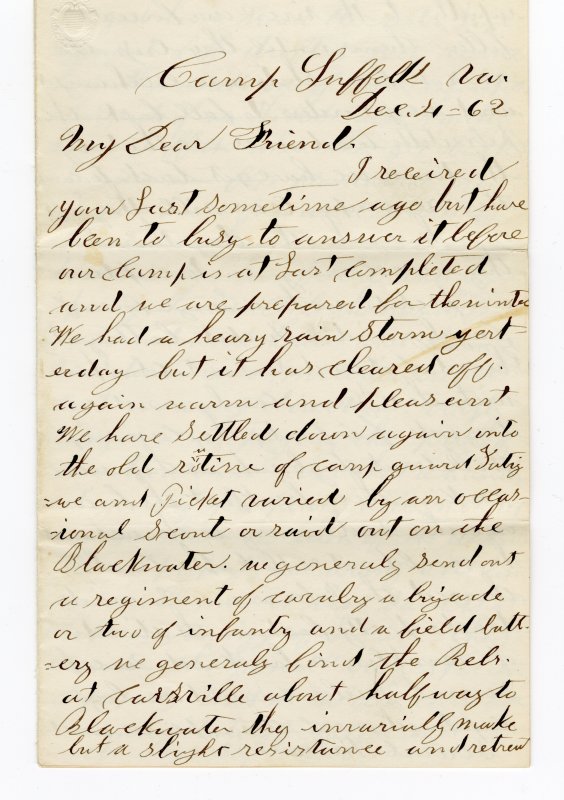 Camp Suffolk Va.
Dec. 4 = 62
My Dear Friend.
I received
your Last sometime ago but have
been to busy to answer it before
our Camp is at Last completed
and we are prepared for the winter
We had a heavy rain Storm yest
erday but it has cleared off.
again warm and pleasant
We have Settled down again into
the old rutine of camp guard
=we and Picket varied by an occas-
=ional Scout or raid out on the
Blackwater. we generaly send out
a regiment of cavalry a brigade
or two of infantry and a field batt-
=ery we generaly find the Rebs.
at Carsville about half way to
Blackwater they invariably make
but a slight resistance and retreat